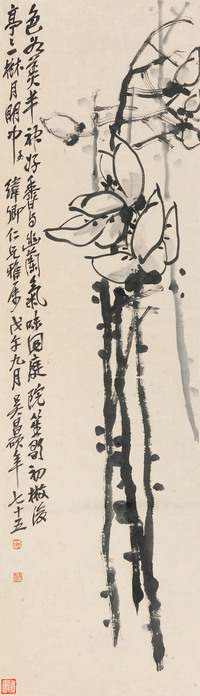 色如半好香與幽蘭氣味同庭院笙歌初散後
亭二月明中 偉卿仁兄雅屬 戊午九月 吳昌碩年七十五